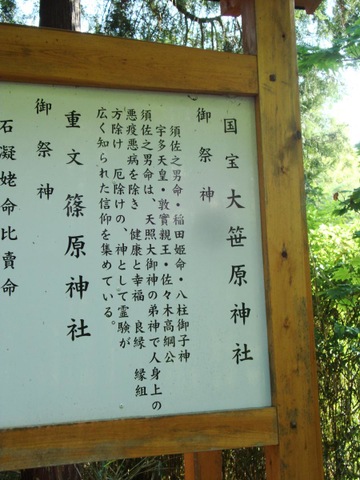 国宝 大笹原神社
御祭神
須佐之男命・稲田姫命・八柱御子神
宇多天皇・敦實親王・佐々木高綱公
須佐之男命は、天照大御神の弟神で人身上の
悪疫悪病を除き 健康と幸福 良縁 縁組
方除け 厄除けの、神として霊験が
広く知られた信仰を集めている。
重文 篠原神社
御祭神
石凝姥命比賣命